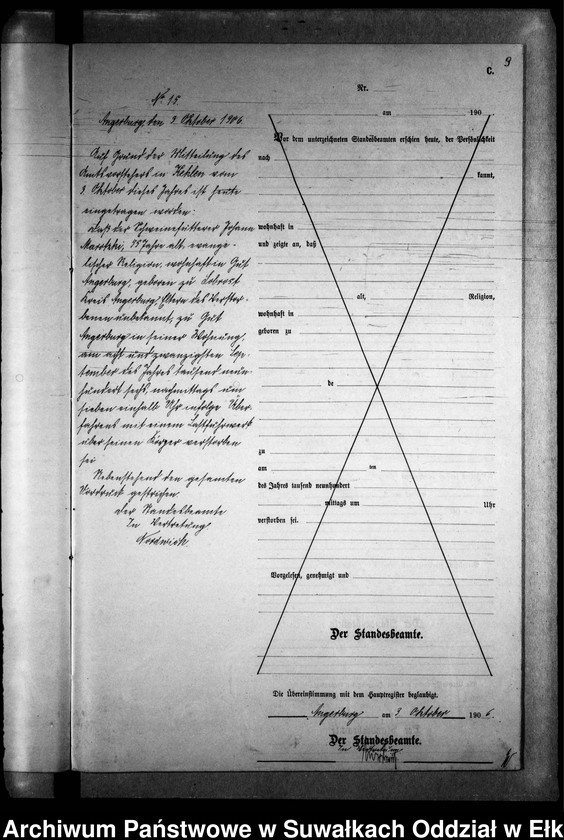 9
C.
Nr.
No 15.
Angerburg, den 3. Oktober 1906
Auf Grund der Mitteilung des
Amtsvorstehers in Kehlen vom
3. Oktober dieses Jahres ist heute
eingetragen worden:
Daß der Schweinefütterer Johann
55 Jahre alt, evange-
lischer Religion, wohnhaft in Gut
Angerburg, geboren zu
Kreis Angerburg, Eltern des Verstor-
benen unbekannt, zu Gut
Angerburg in seiner Wohnung,
am acht und zwanzigsten Sep-
tember des Jahres tausend neun-
hundert sechs, nachmittags um
sieben einhalb Uhr infolge Über-
fahrens mit einem Lastfuhrwerk
über seinen Körper verstorben
sei
Nebenstehend den gesamten
Vordruck gestrichen
Der Standesbeamte
In Vertretung
am 190
Vor dem unterzeichneten Standesbeamten erschien heute, der Persönlichkeit
nach
kannt,
wohnhaft in
und zeigte an, daß
alt, Religion,
wohnhaft in
geboren zu
de
zu
am ten
des Jahres tausend neunhundert
mittags um Uhr
verstorben sei.
Vorgelesen, genehmigt und
Der Standesbeamte.
Die Übereinstimmung mit dem Hauptregister beglaubigt.
Angerburg am 3 Oktober 1906.
Der Standesbeamte.
In Vertretung
Archiwum Państwowe w Suwałkach Oddział w Ełku